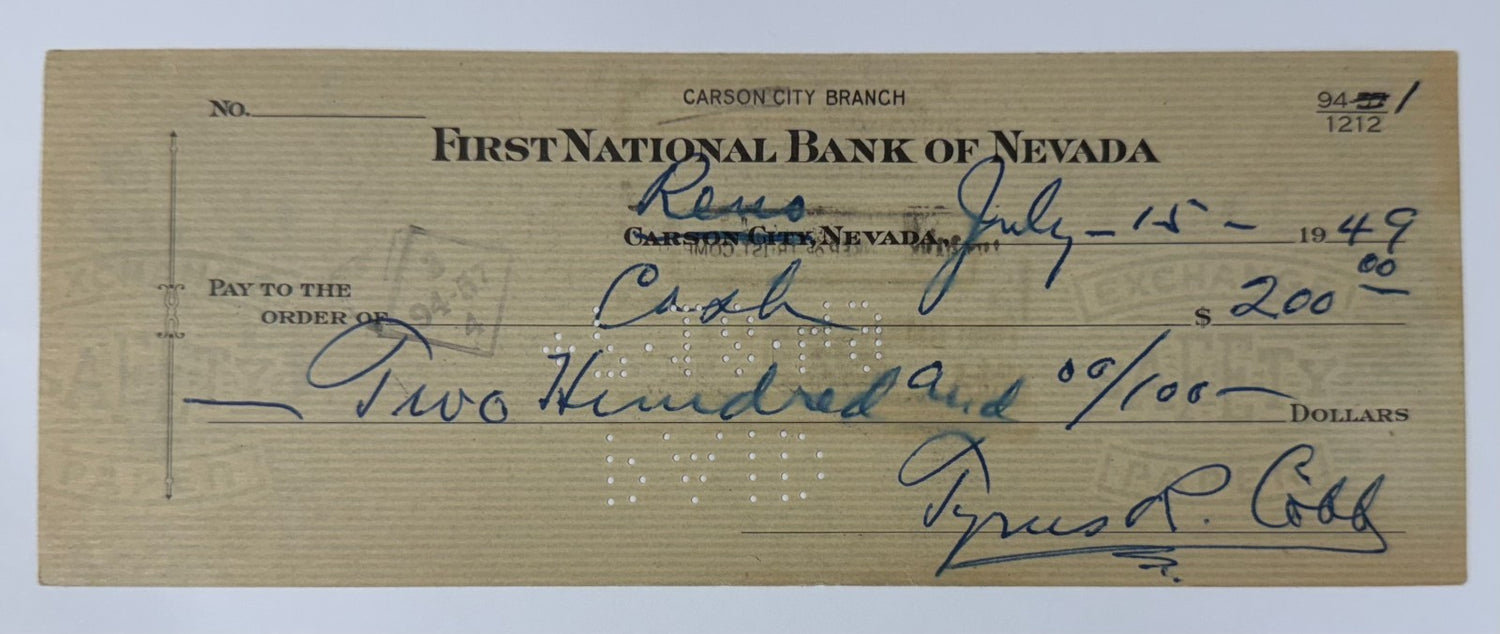 CARSON CITY BRANCH
No.
94- 1
1212
FIRST NATIONAL BANK OF NEVADA
Reno July-15- 1949
CARSON CITY, NEVADA,
PAY TO THE
ORDER OF Cash $ 200 00
94-57
4
Two Hundred and 00/100 DOLLARS
EXCHANGE
SAFETY
PAPER
Tyrus R. Cobb